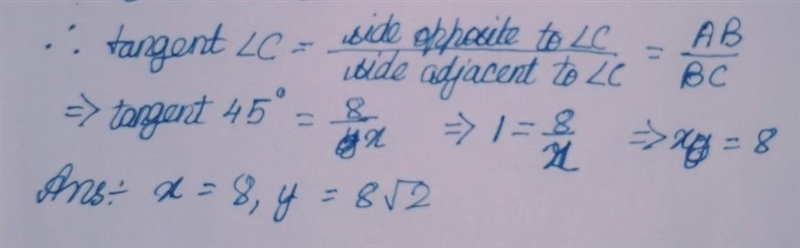 ∴ tangent ∠C = side opposite to ∠C / side adjacent to ∠C = AB / BC
⇒ tangent 45° = 8/x ⇒ 1 = 8/x ⇒ x = 8
Ans÷ x = 8, y = 8√2